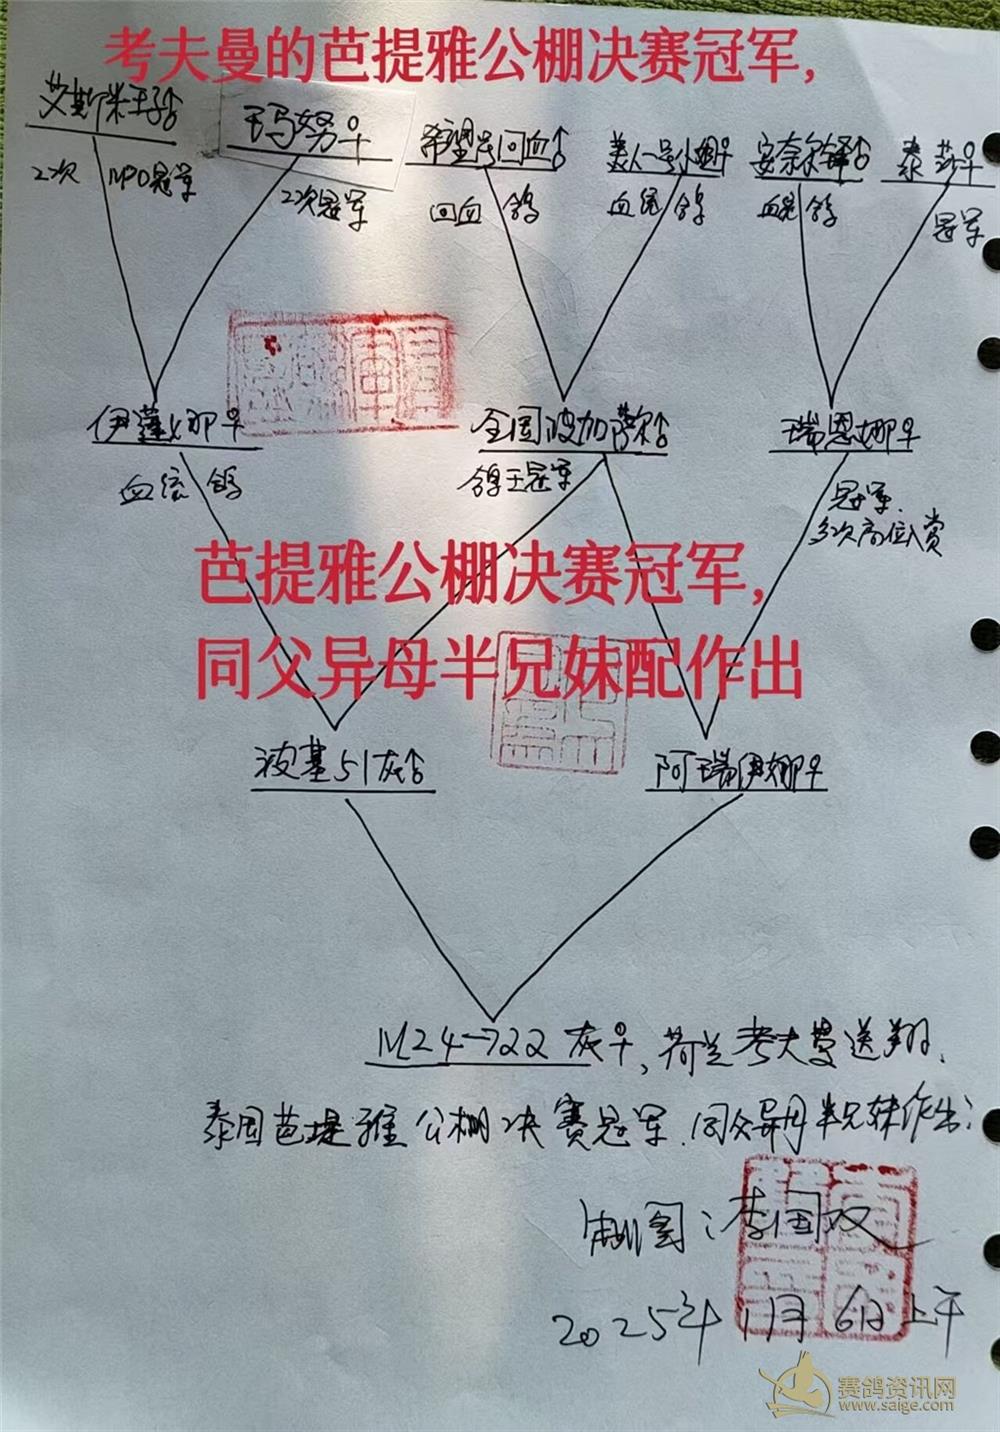 考夫曼的芭提雅公棚决赛冠军,
艾斯米王子♂ 玛努♀ 希望号回血♂ 美人一号小姐♀ 安奈尔锋♂ 泰莎♀
2次 NPO冠军 2次冠军 回血 鸽 血统 鸽 血统 鸽 冠军
伊莲娜♀ 全国波加萨尔♂ 瑞恩娜♀
血统 鸽 鸽王冠军 冠军.
多次高位入赏
芭提雅公棚决赛冠军,
同父异母半兄妹配作出
波基51灰♂ 阿瑞伊娜♀
NL24-722 灰♀, 荷兰考夫曼送翔.
泰国芭堤雅公棚决赛冠军.同父异母半兄妹作出;
制图:李国双
2025年1月6日上午
赛鸽资讯网
www.saige.com